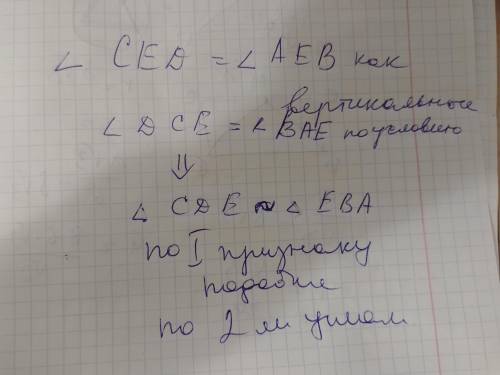 ∠ CED = ∠ AEB как
вертикальные
∠ DCE = ∠ BAE по условию
⇓
∠ CDE ~ ∠ EBA
по I признаку
подобия
по 2 м углам